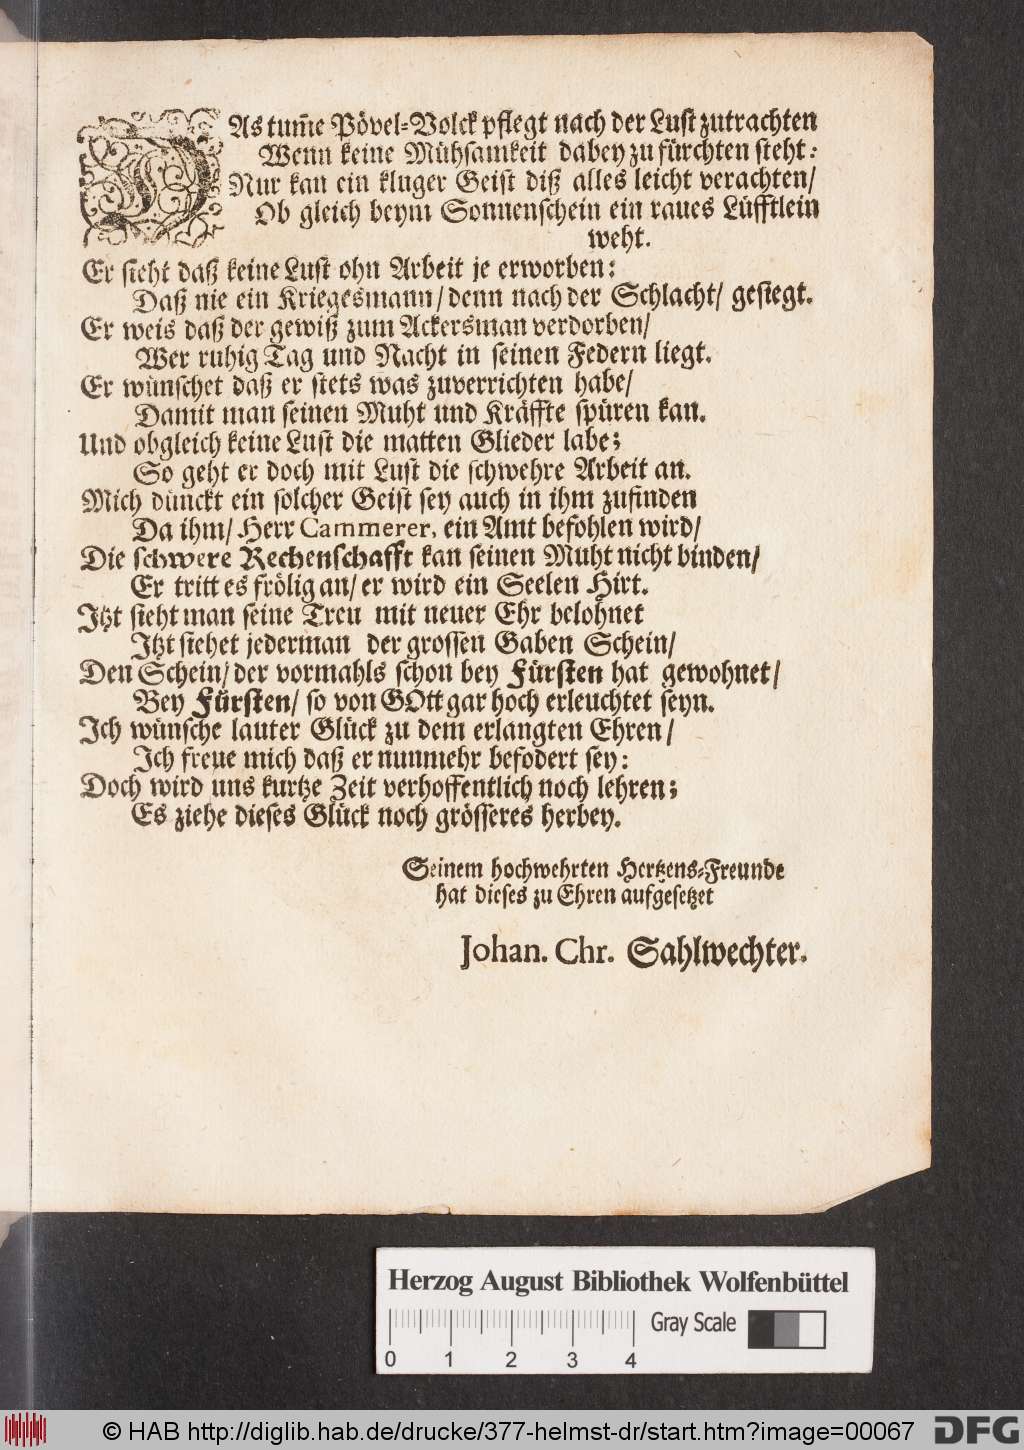 DAs tum̃e Pövel-Volck pflegt nach der Lust zutrachten
Wenn keine Mühsamkeit dabey zu fürchten steht:
Nur kan ein kluger Geist diß alles leicht verachten/
Ob gleich beym Sonnenschein ein raues Lüfftlein
weht.
Er sieht daß keine Lust ohn Arbeit je erworben:
Daß nie ein Kriegesmann/ denn nach der Schlacht/ gesiegt.
Er weis daß der gewiß zum Ackersman verdorben/
Wer ruhig Tag und Nacht in seinen Federn liegt.
Er wünschet daß er stets was zuverrichten habe/
Damit man seinen Muht und Kräffte spüren kan.
Und obgleich keine Lust die matten Glieder labe;
So geht er doch mit Lust die schwehre Arbeit an.
Mich dünckt ein solcher Geist sey auch in ihm zufinden
Da ihm/ Herr Cammerer, ein Amt befohlen wird/
Die schwere Rechenschafft kan seinen Muht nicht binden/
Er tritt es frölig an/ er wird ein Seelen Hirt.
Jtzt sieht man seine Treu mit neuer Ehr belohnet
Jtzt siehet jederman der grossen Gaben Schein/
Den Schein/ der vormahls schon bey Fürsten hat gewohnet/
Bey Fürsten/ so von GOtt gar hoch erleuchtet seyn.
Ich wünsche lauter Glück zu dem erlangten Ehren/
Ich freue mich daß er nunmehr befodert sey:
Doch wird uns kurtze Zeit verhoffentlich noch lehren;
Es ziehe dieses Glück noch grösseres herbey.
Seinem hochwehrten Hertzens-Freunde
hat dieses zu Ehren aufgesetzet
Johan. Chr. Sahlwechter.
Herzog August Bibliothek Wolfenbüttel
Gray Scale
0 1 2 3 4
© HAB http://diglib.hab.de/drucke/377-helmst-dr/start.htm?image=00067
DFG